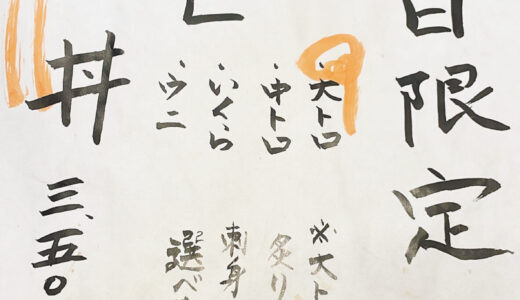 日限定
・大トロ
・中トロ
・いくら
・ウニ
丼
三、五〇
※大ト
炙り
刺身
選べ